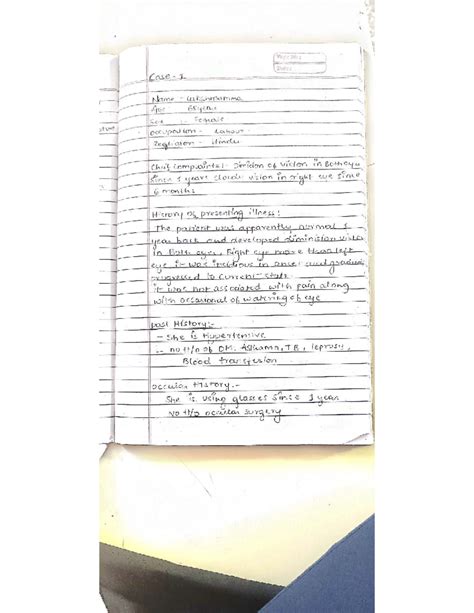 Page No.
Date
Case - 1
Name - Lakshmamma
Age
Sex - Female
Occupation - Labour
Religion - Hindu
Chief complaints:- of vision in Both eye
since 5 years cloudy vision in right eye since
6 months
History of presenting illness:
The patient was apparently normal 5
year back and developed diminision vision
in Both eyes, Right eye more than left
eye it was insidious in onset and gradually
progressed to current state
it was not associated with pain along
with occasional of watering of eye
past History:-
- She is Hypertensive
- no H/o of DM, Asthama, TB, leprosy,
Blood transfusion
occular History:-
She is using glasses since 1 year
No H/o occular surgery